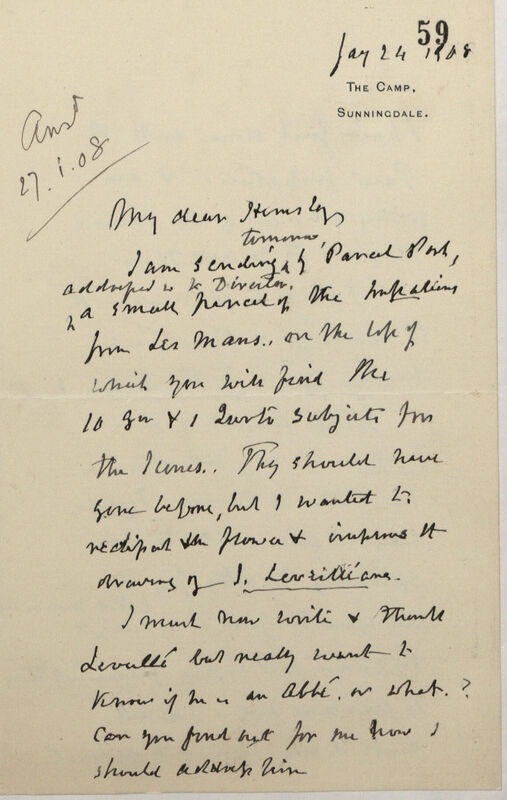 59
Jay 24 1908
THE CAMP,
SUNNINGDALE.
Ansd
27.1.08
My dear Hemsley
tomorrow
I am sending by Parcel Post,
addressed to the Director,
a small parcel of the Impatiens
from Les Mans., on the top of
which you will find the
10 & 1 Quarto subjects for
the Icones.. They should have
gone before, but I wanted to
the flower & improve the
drawing of I. Leveilléana.
I must now write & thank
Leveillé but really want to
know if he is an Abbé, or what.?
Can you find out for me how I
should address him